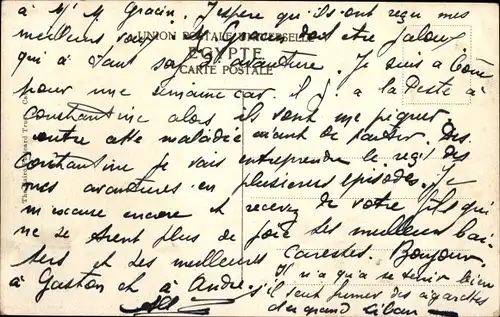 à Mr M Gracin. J'espère qu'ils ont reçu mes
meilleurs doit etre jaloux
UNION POSTALE UNIVERSELLE
EGYPTE
CARTE POSTALE
qui a tant d'avanture. Je suis à
pour une semaine car il y a la Peste à
Constantine alors ils vont me piquer
contre cette maladie avant de sauter. Dès
Constantine je vais entreprendre le récit des
mes avantures en plusieurs épisodes. Je
m'excuse encore et recevez de votre fils qui
ne se sent plus de joie ses meilleurs bai-
sers et ses meilleurs caresses. Bonjour
à Gaston et à André. Il n'a qu'a se tenir bien
s'il veut fumer des cigarettes
du grand Liban